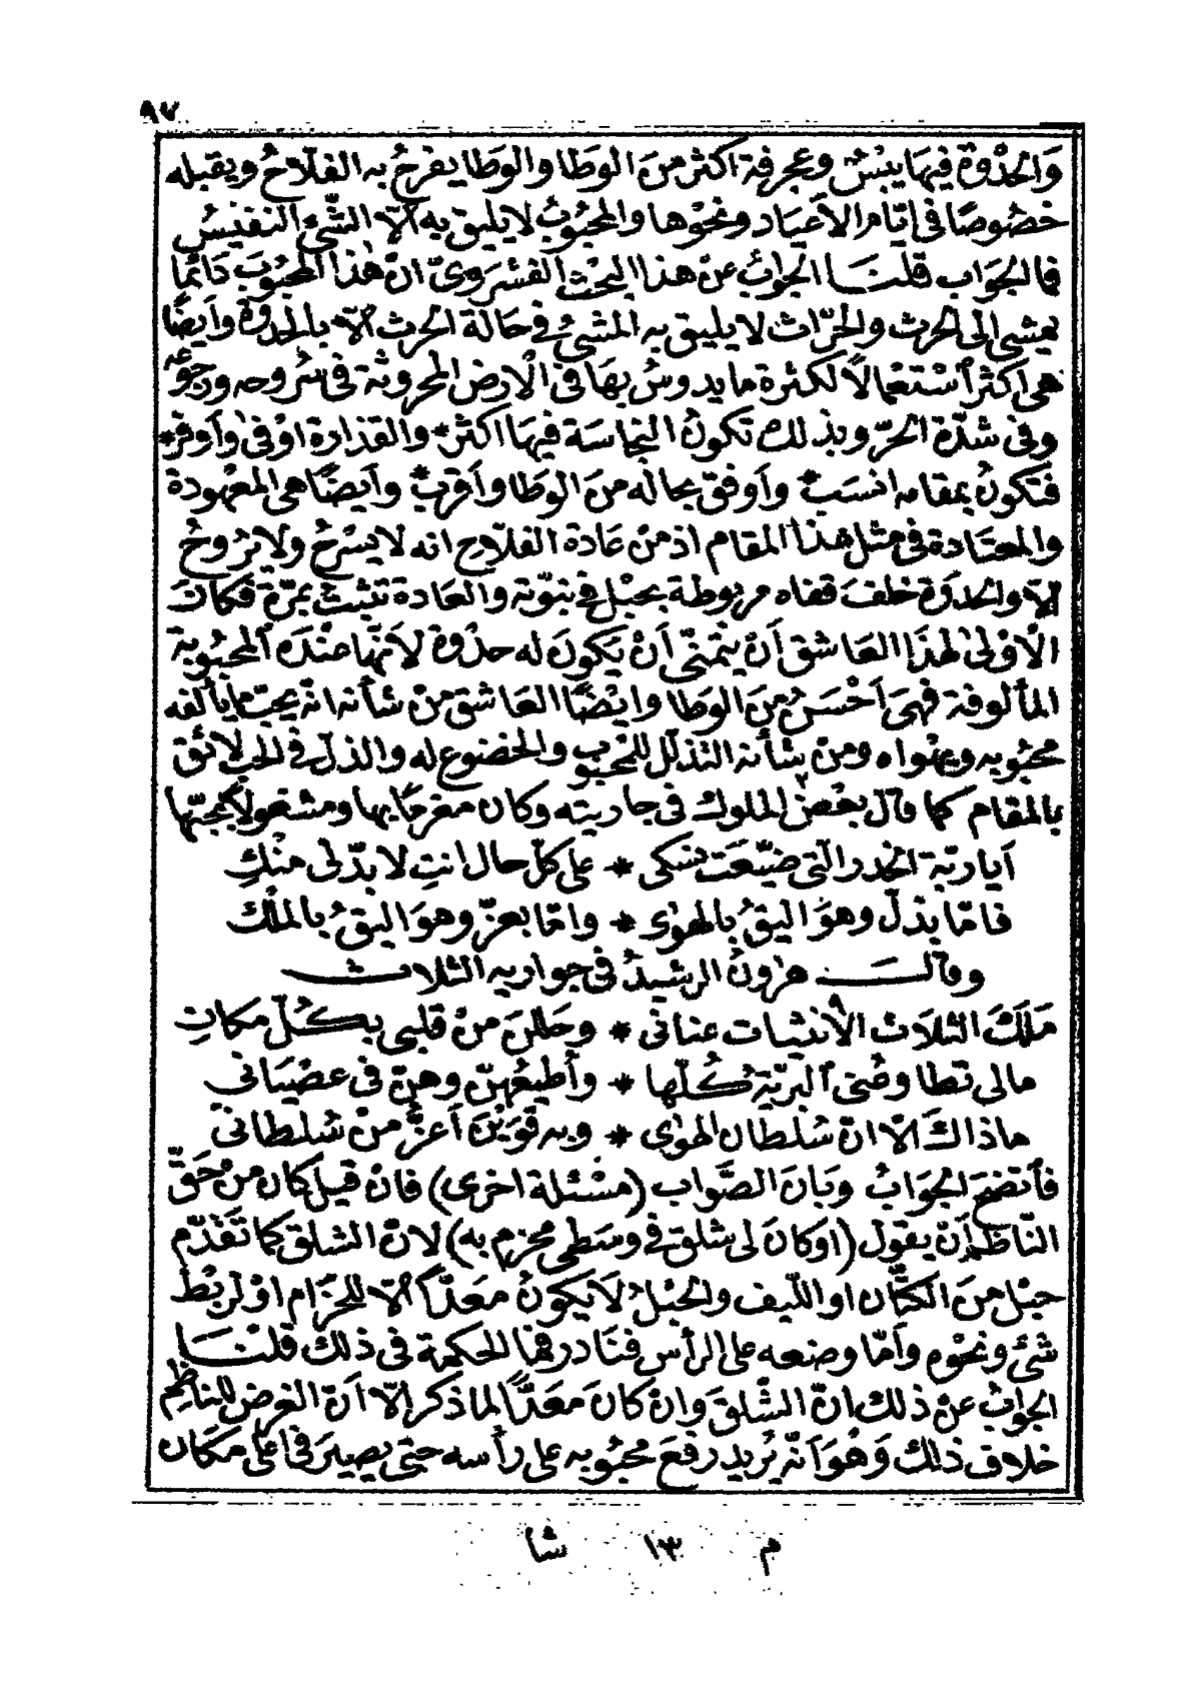 ٩٧
وَالحُذْوَة فيها يَبْسٌ وعجرفة اكثر منَ الوَطا والوَطا يفرحُ به الفلّاحُ ويقبله
خصُوصًا فى ايّام الاَعيَاد ونحوْها والمحبُوبُ لا يليق به الّا الشّىءُ النفيسُ
فما الجوَاب قلنا الجوَابُ عنْ هذا البحث الفشروىّ انّ هٰذا المحبُوبَ دَائمًا
يمشى الى الحرث والحرّاث لا يليق به المشىُ فى حَالة الحرث الّا بالحدوة وأيضًا
هى اكثر اسْتعْمالاً لكثرة ما يدوسُ بهَا فى الْارض المحروثة فى سُروحه ورجوعه
وفى شدّة الحرّ وبذلك تكونُ النجاسَة فيهَا اكثر * والقذارة اوْفىٰ وأوفر *
فتكونُ بمقامه انسَبُ * وأوفق بحاله منَ الوَطا وأقربُ * وأيضًا هى المعْهودة
والمعتَادة فى مثل هذا المقام اذ منْ عَادة الفلاح انه لا يسْرحُ ولا يرُوحُ
الّا والحدْوَة خلفَ قفاه مربوطة بحبْل فى نبّوته والعَادة تثبتُ بمرّة فكانَ
الْاوْلىٰ لهٰذَا العَاشق أنْ يتمنّى أنْ يكونَ له حدْوة لأنّها عنْدَه المحبُوبة
المألوفة فهىَ أحْسَنُ منَ الوَطا وايْضًا العَاشق منْ شأنه انّه يحبّ ما يألفه
محبُوبه ويهْواه ومنْ شأنه التذلّل للمحبُوب والخضوع له والذلّ فى الحبّ لائق
بالمقام كما قال بعْضُ الملوك فى جاريته وكان مغرمًا بها ومشغولاً بمحبّتها
أيا ربّة الخدر الّتى ضيّعَت نسكى * على كلّ حال انتِ لا بدّ لى منْكِ
فامّا بذلّ وهوَ اليقُ بالهوٰى * وامّا بعزّ وهوَ اليقُ بالملْك
وقالَ هٰرونُ الرشيدُ فى جواريه الثلاث
مَلَكَ الثلَاث الأنسَات عنانى * وحَللنَ منْ قلبى بكلّ مكانِ
مالى تطاوعُنى البريّة كُلّها * وأُطيعُهنّ وهنّ فى عصْيَانى
ما ذاكَ الّا انّ سُلطان الهوٰى * وبه قوَيْنَ أعزُّ منْ سُلطانى
فأتضحَ الجوَابُ وبَانَ الصَّواب (مسْئلة اخرى) فانْ قيل كان منْ حَقّ
النّاظم أنْ يقول (اوكانَ لى شلق فى وسَطى محزم به) لانّ الشلق كما تقَدّم
حبْل منَ الكتّان او اللّيف والحبْلُ لَا يكونُ معَدًّا الّا للحزام اوْ لربْط
شىْء ونحْوه وأمّا وضعه على الرأس فنَادر فما الحكمة فى ذلك قلنَا
الجوَابُ عنْ ذلك انّ الشّلقَ وانْ كانَ معَدًّا لما ذكر الّا أنّ الغرض للناظم
خلاف ذلك وَهُوَ أنّه يُريد رفعَ محبُوبه على رأسه حتّى يصيرَ فى أعلى مكان
م ١٣ شا